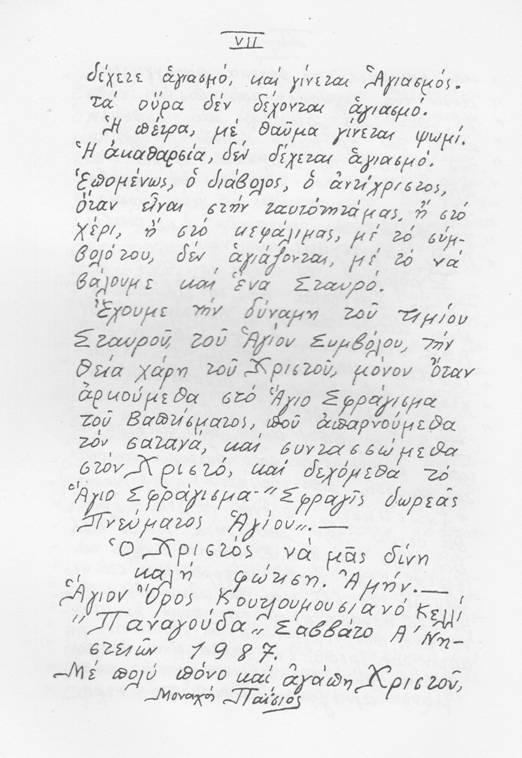 VII
δέχετε ἁγιασμό, καί γίνεται Ἁγιασμός.
τά οὖρα δέν δέχονται ἁγιασμό.
Ἡ πέτρα, μέ θαῦμα γίνεται ψωμί.
Ἡ ἀκαθαρσία, δέν δέχεται ἁγιασμό.
Ἑπομένως, ὁ διάβολος, ὁ ἀντίχριστος,
ὅταν εἶναι στήν ταυτότητάμας, ἤ στό
χέρι, ἤ στό κεφάλιμας, μέ τό σύμ-
βολότου, δέν ἁγιάζονται, μέ τό νά
βάλουμε καί ἕνα Σταυρό.
Ἔχουμε τήν δύναμη τοῦ τιμίου
Σταυροῦ, τοῦ Ἁγίου Συμβόλου, τήν
θεία χάρη τοῦ Χριστοῦ, μόνον ὅταν
ἀρκούμεθα στό Ἅγιο Σφράγισμα
τοῦ Βαπτίσματος, πού ἀπαρνούμεθα
τόν σατανά, καί συντασσώμεθα
στόν Χριστό, καί δεχόμεθα τό
Ἅγιο Σφράγισμα-"Σφραγίς δωρεᾶς
Πνεύματος Ἁγίου".—
Ὁ Χριστός νά μᾶς δίνη
καλή φώτιση. Ἀμήν.—
Ἅγιον Ὄρος Κουτλουμουσιανό Κελλί
"Παναγούδα" Σάββατο Α΄ Νη-
στειῶν 1987.
Μέ πολύ πόνο καί ἀγάπη Χριστοῦ,
Μοναχός Παΐσιος